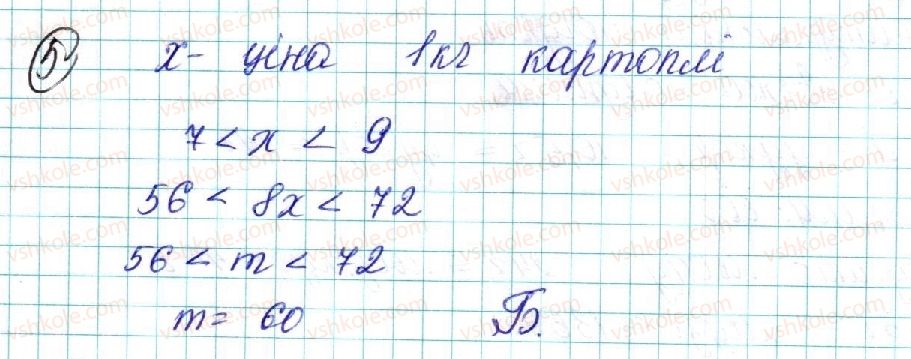 5 x - ціна 1кг картоплі
7 < x < 9
56 < 8x < 72
56 < m < 72
m = 60 Б.